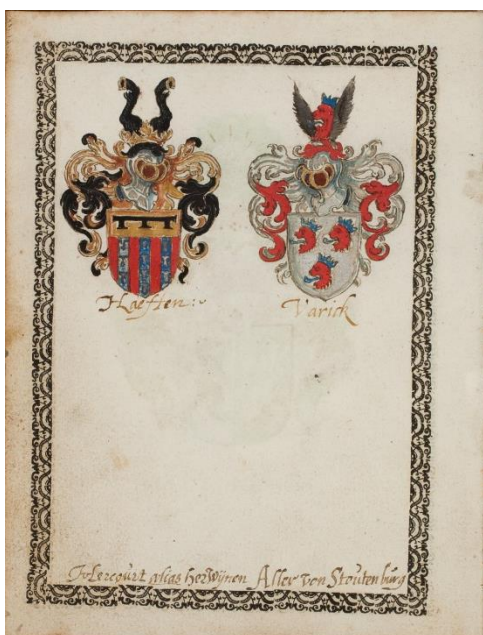 Haeften:
Varick
Hercourt alias herwijnen Aller von Stoutenburg